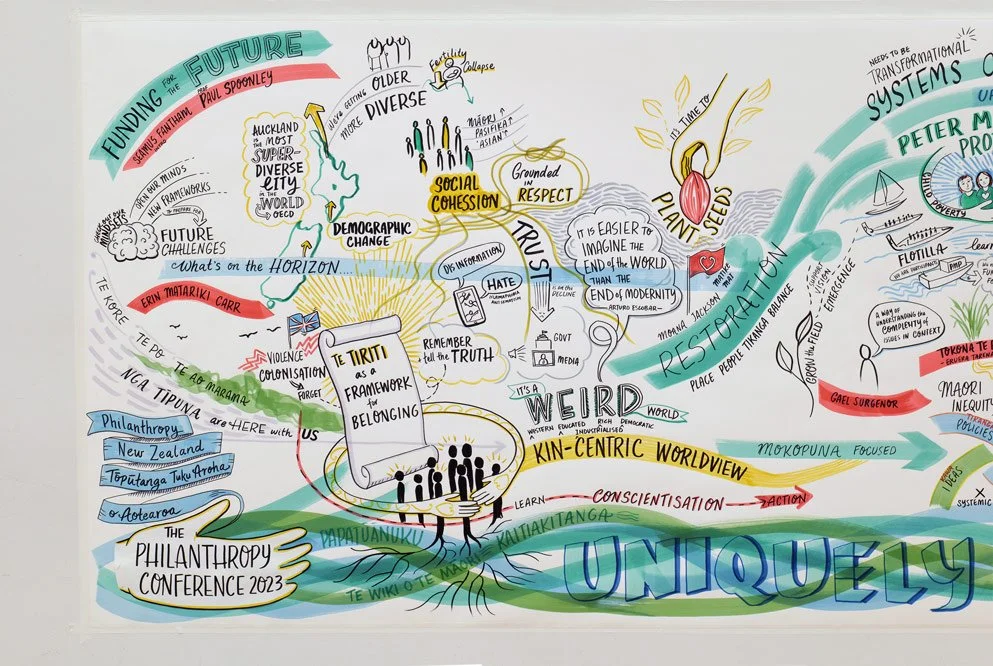 FUNDING FOR THE FUTURE
SEAMUS FANTHAM PROF PAUL SPOONLEY
INTRO
OPEN OUR MINDS
NEW FRAMEWORKS
to PREPARE FOR
FUTURE
CHALLENGES
MINDSETS
AUCKLAND
THE MOST
SUPER-
DIVERSE
CITY
IN THE
WORLD
OECD
WE'RE GETTING OLDER
MORE DIVERSE
Fertility
Collapse
MĀORI
PASIFIKA
ASIAN
SOCIAL
COHESSION
Grounded
IN
RESPECT
DEMOGRAPHIC
CHANGE
What's on the HORIZON....
IT'S TIME TO
PLANT SEEDS
TRUST
IS ON THE
DECLINE
GOVT
MEDIA
DISINFORMATION
HATE
ISLAMOPHOBIA
ANTISEMITISM
REMEMBER
& tell the TRUTH
IT IS EASIER TO
IMAGINE THE
END of the WORLD
THAN THE
END of MODERNITY
ARTURO ESCOBAR
MATIKE
MAI
MOANA JACKSON
RESTORATION
PLACE PEOPLE TIKANGA BALANCE
ERIN MATARIKI CARR
TE KORE
TE PO
TE AO MARAMA
NGA TIPUNA are HERE with US
VIOLENCE
COLONISATION
FORGET
TE TIRITI
as a
FRAMEWORK
for
BELONGING
IT'S A
WEIRD
WORLD
WESTERN EDUCATED INDUSTRIALISED RICH DEMOCRATIC
KIN-CENTRIC WORLDVIEW
MOKOPUNA FOCUSED
LEARN
CONSCIENTISATION
ACTION
Philanthropy
New Zealand
Tōpūtanga Tuku Aroha
o Aotearoa
THE
PHILANTHROPY
CONFERENCE 2023
PAPATUANUKU
KAITIAKITANGA
TE WIKI O TE MAORI
UNIQUELY
NEEDS TO BE
TRANSFORMATIONAL
SYSTEMS
PETER M
PRO
CHILD POVERTY
FLOTILLA
PMP
learn
SUPPORT
VISION
EMERGENCE
GROW the FIELD
A WAY OF
UNDERSTANDING the
COMPLEXITY of
ISSUES IN CONTEXT
GAEL SURGENOR
TOKONA TE
MAORI
INEQUITY
POLICIES
IDEAS
SYSTEMIC